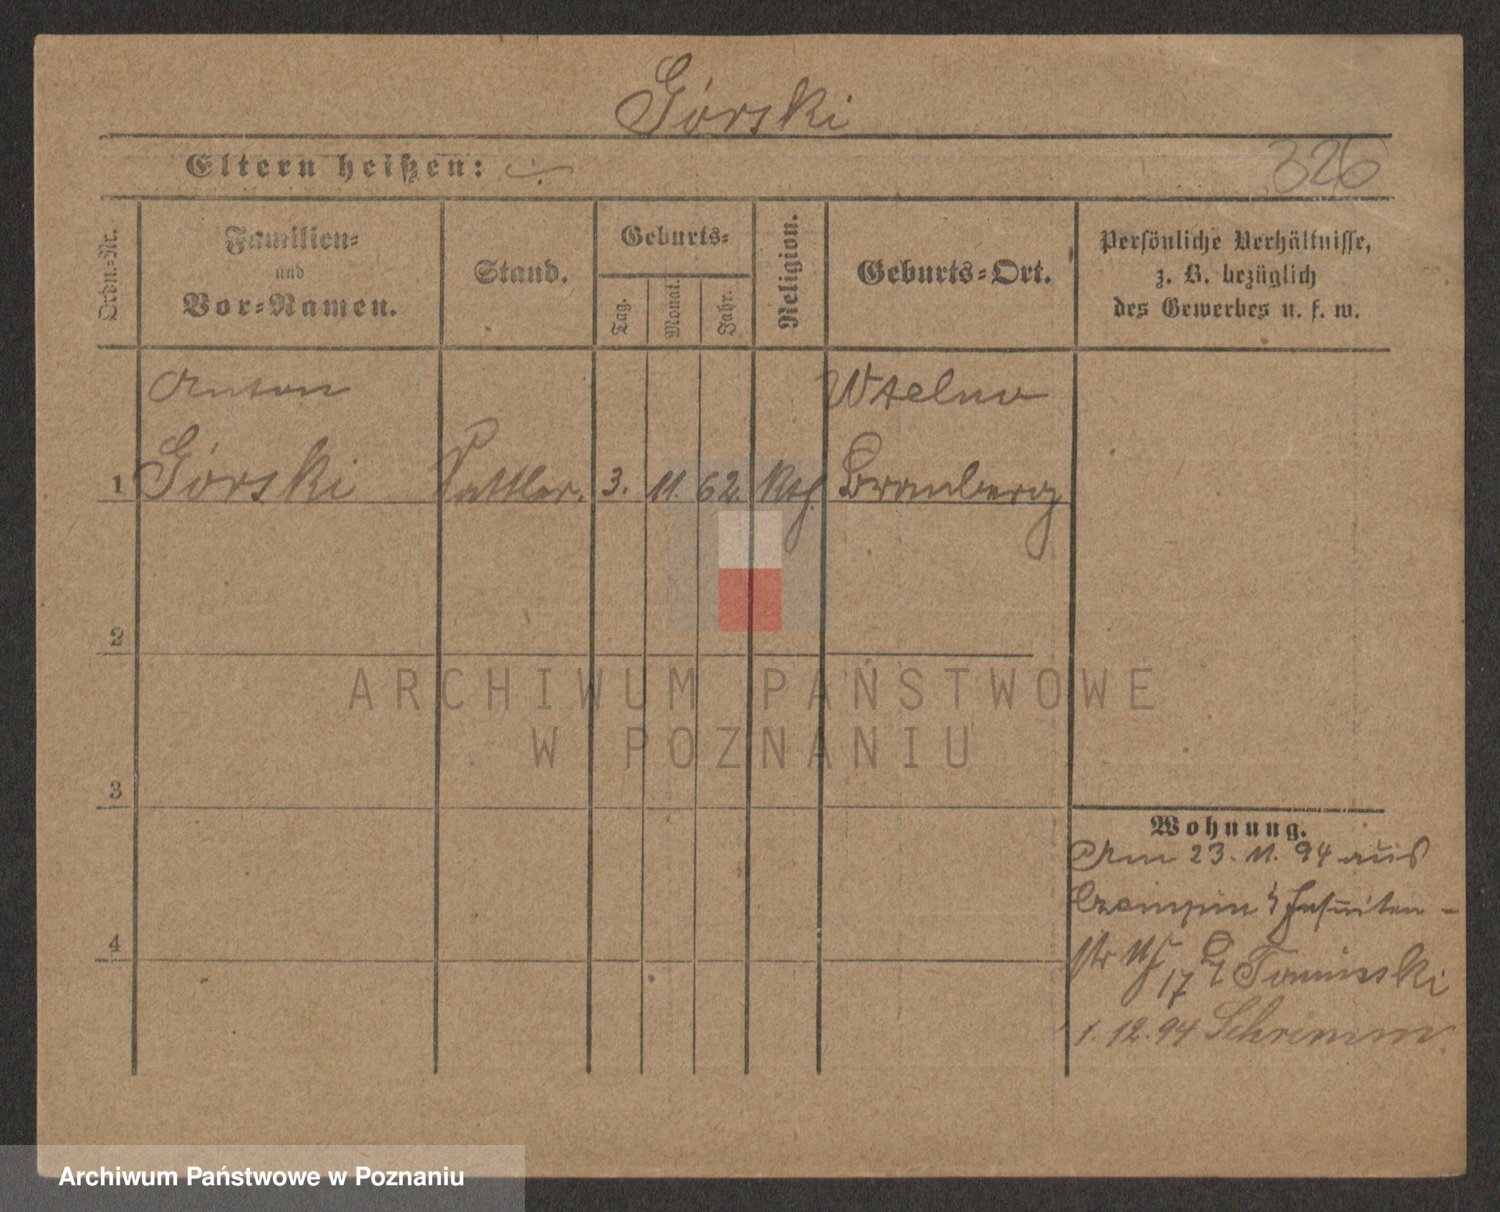 Górski
Eltern heißen: ⁒
326
Ordn.-Nr.
Familien-
und
Vor-Namen.
Stand.
Geburts-
Tag.
Monat.
Jahr.
Religion.
Geburts-Ort.
Persönliche Verhältnisse,
z. B. bezüglich
des Gewerbes u. s. w.
Anton
Wtelno
1 Górski Sattler. 3. 11. 62. kth. Bromberg
2
3
4
Wohnung.
Am 23. 11. 94 aus
Czempin Jesuiten-
str 17 Tominski
1. 12. 94 Schrimm
ARCHIWUM PAŃSTWOWE
W POZNANIU
Archiwum Państwowe w Poznaniu